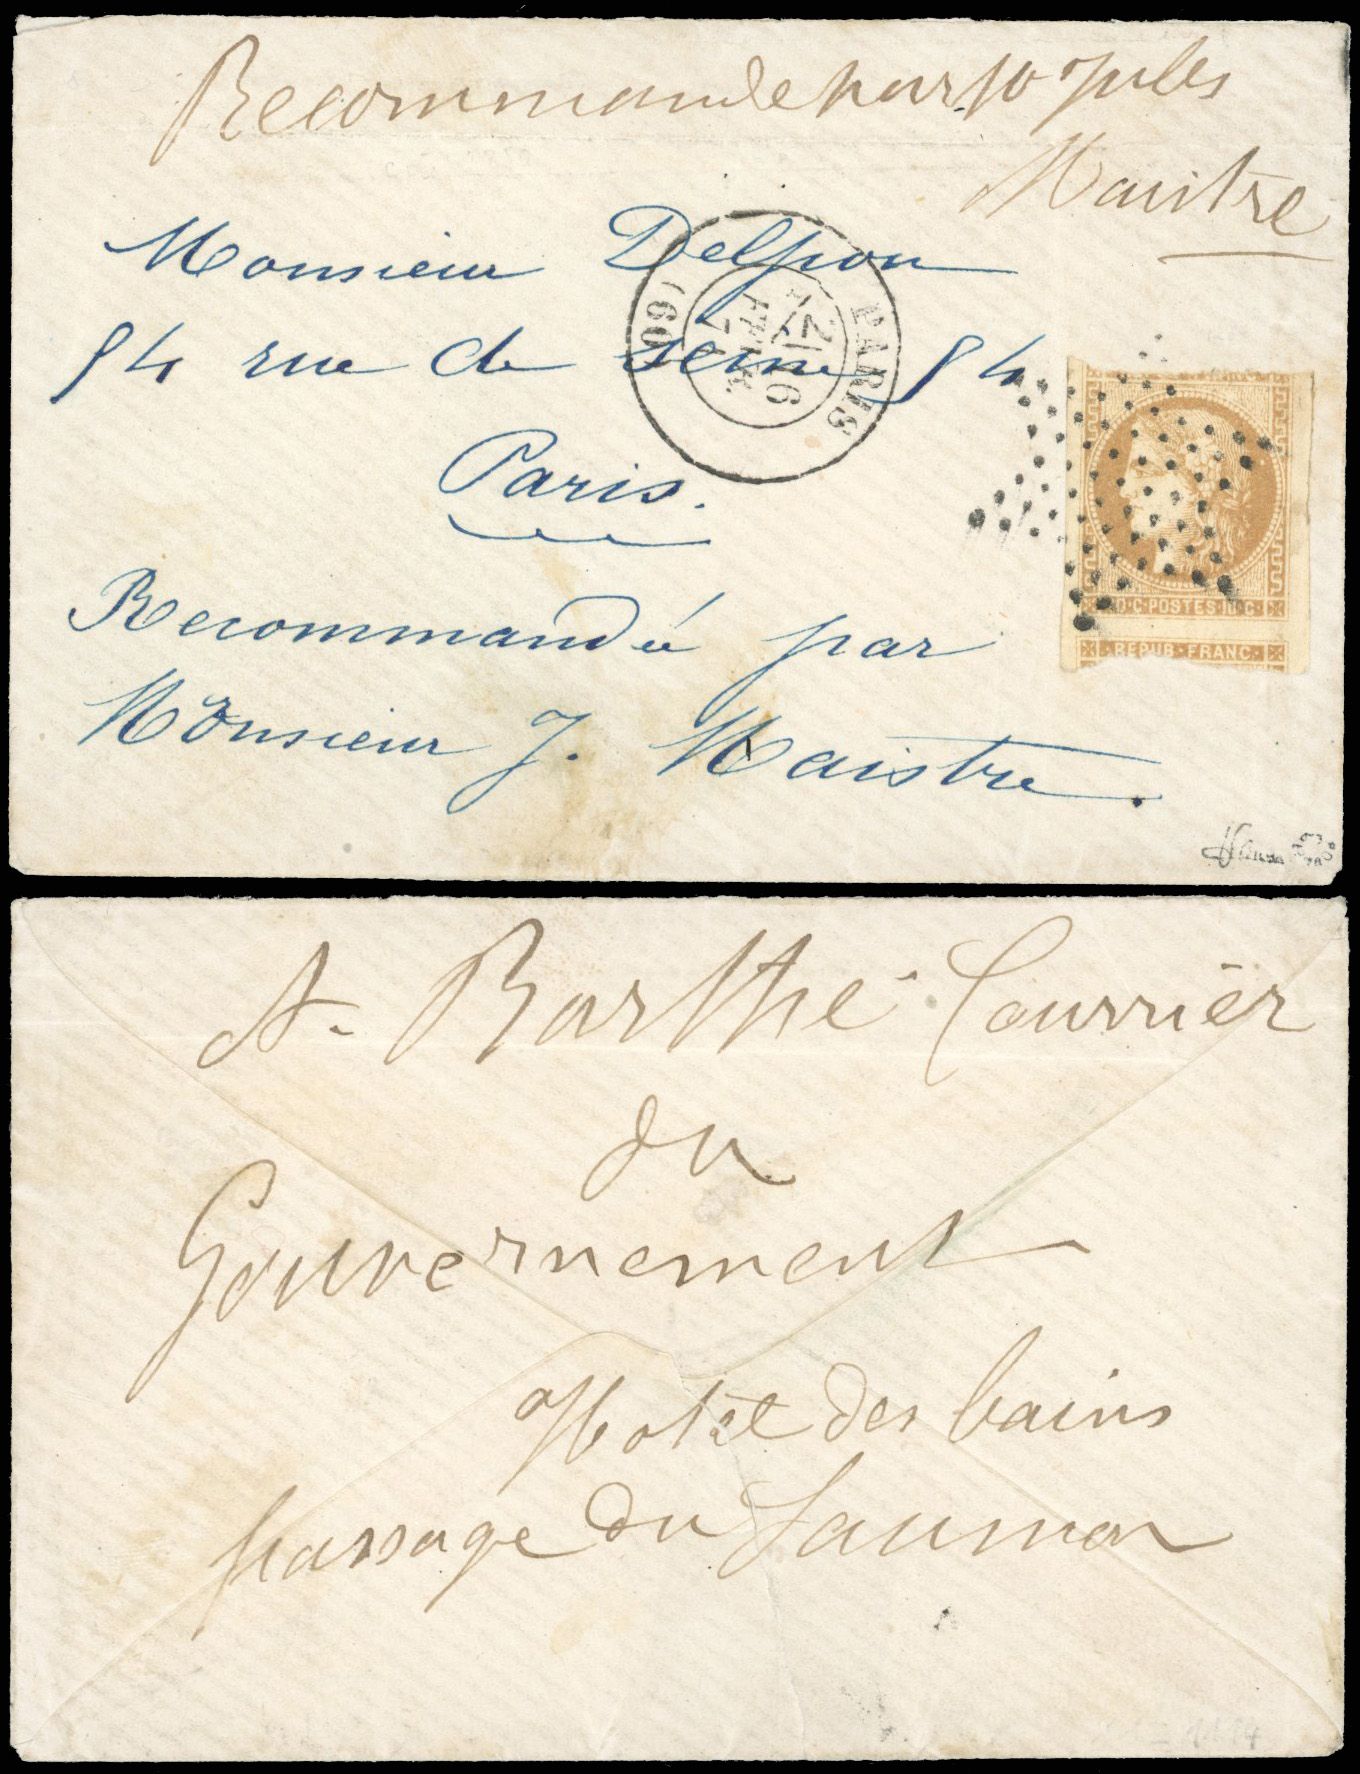 Recommande par Jules
Maitre
Monsieur Delpon
54 rue de Seine 54
Paris.
PARIS (60)
2E
6
FEVR.
71
10·C·POSTES·10·C
·REPUB·FRANC·
Recommandée par
Monsieur J. Maistre.
A. Barthe Courrier
du
Gouvernement
Hotel des bains
passage du Saumon